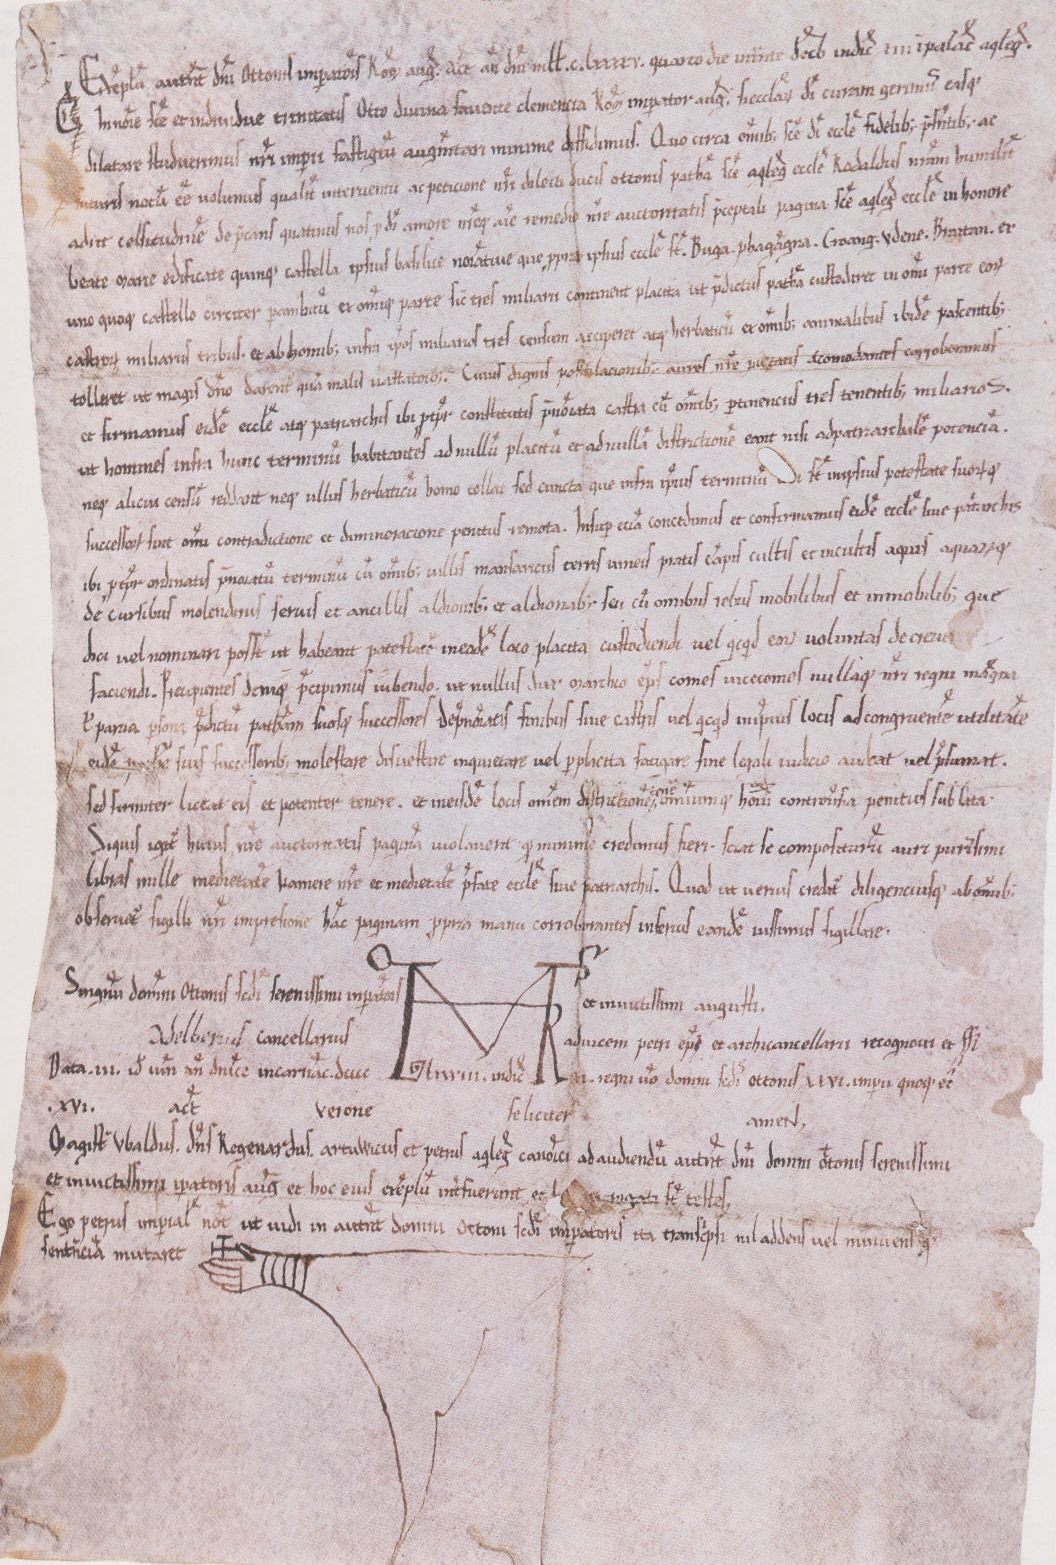 Exēplū autēnt dnī Ottonis impatoris Rom̄ aug̃. Act̄ añ dnī mill̄.c.lxxxx. quarto die int̄nte dec̄b indic̄ im palac̄ aqleg̃.
In noīe scē et individue trinitatis Otto divina favente clemencia Rom̄ imperator aug̃. si ecclas dī curam gerimus easq
dilatare studuerimus nr̄i imperii fastigiū augm̄tari minime diffidimus. Quo circa om̄ib; scē dī eccle fidelib; p̄sn̄tib; ac
futuris notū eē volumus qualit̄ interventu ac peticione nr̄i dilecti ducis ottonis patha scē aqleg̃ eccle Rodaldus nr̄am humilit̄
adiit celsitudinē dep̄cans quatinus nos p dī amore nr̄eq aīe remedio nr̄e auctoritatis p̄ceptali pagina scē aqleg̃ eccle in honore
beate marie edificate quinq castella ipsius basilice noīative que ppria ipsius eccle st̄. Buga. phagagna. Groang. Udene. Braitan. et
uno quoq castello circiter p ambitū et om̄iq parte sic̄ tres miliarii continent placita ut p̄dictus patha custodiret in om̄i parte eor̄
castror̄ miliariis tribus. et ab homīb; infra ip̄os miliarios tres censum acciperet atq herbaticū et om̄ib; animalibus ibidē pascentib;
tolleret ut magis dn̄o darent quā malis vastatorib;. Cuius dignis postulacionib; aures nr̄e pietatis acomodantes corroboramus
et firmamus eidē eccle atq patriarchis ibi p tp̄r constitutis p̄noīata castra cū om̄ib; ptinenciis tres tenentib; miliarios.
ut homines infra hunc terminū habitantes ad nullū placitū et ad nullā districtionē eant nisi ad patriarchalē potenciā.
neq alicui censū reddant neq ullus herbaticū homo tollat sed cuncta que infra ip̄ius terminū st̄ in ipsius potestate suorq
successor̄ sint om̄i contradictione et diminoracione penitus remota. Insup eciā concedimus et confirmamus eidē eccle sive patriarchis
ibi p tp̄r ordinatis p̄noīatū terminū cū om̄ib; villis mansariciis terris vineis pratis cāpis cultis et incultis aquis aquarq
decursibus molendinis servis et ancillis aldionib; et aldionab; seu cū omnibus rebus mobilibus et immobilib; que
dici vel nominari posst̄ ut habeant potestatē in eadē loco placita custodiendi vel qcqd eor̄ voluntas decreverit
faciendi. p̄cipimus iubendo. ut nullus dux marchio ep̄s comes vicecomes nullaq nr̄i regni magna
parva psona p̄dictū patham suosq successores dep̄noīatis finibus sive castris vel qcqd in ip̄ius locis ad congruentē utilitatē
eidē suis successorib; molestare disvestire inquietare vel p placita fatigare sine legali iudicio audeat vel p̄sumat.
sed firmiter liceat eis et potenter tenere. et in eisdē locis om̄em districtionē omniumq hoīm controversia penitus sublata.
Siquis igit̄ huius nr̄e auctoritatis paginā violaverit q minime credimus fieri. sciat se compositurū auri purissimi
libras mille medietatē kamere nr̄e et medietatē p̄fate eccle sive patriarchis. Quod ut verius credat̄ diligenciusq ab om̄ib;
observet̄ sigilli nr̄i impresione hāc paginam ppria manu corroborantes inferius eandē iussimus sigillare.
Singnū domni Ottonis scdī serenissimi imp̄atoris et invictissimi augusti.
Adelberius cancellarius ad vicem petri ep̄i et archicancellarii recognovi et ss̄i
Data. iii. id̄ iun̄ añ dn̄ice incarnac̄. dccc indic̄ xi. regni v̄o domni scdī ottonis xxvi. imp̄ii quoq ei̅
.xvi. act̄ verone feliciter amen,
Magist̄ Ubaldus. dn̄s Regenardus. artuvicus et petrus aqleg̃ canoīci ad audiendū autent̄ dn̄i domni ottonis serenissimi
et invictissimi ip̄atoris aug̃ et hoc eius exēplū int̄fuerunt et rogati st̄ testes,
Ego petrus imperial̄ not̄ ut vidi in autent̄ domni Ottoni scdī imp̄atoris ita transc̄psi nil addens vel minuens q
sentn̄ciā mutaret